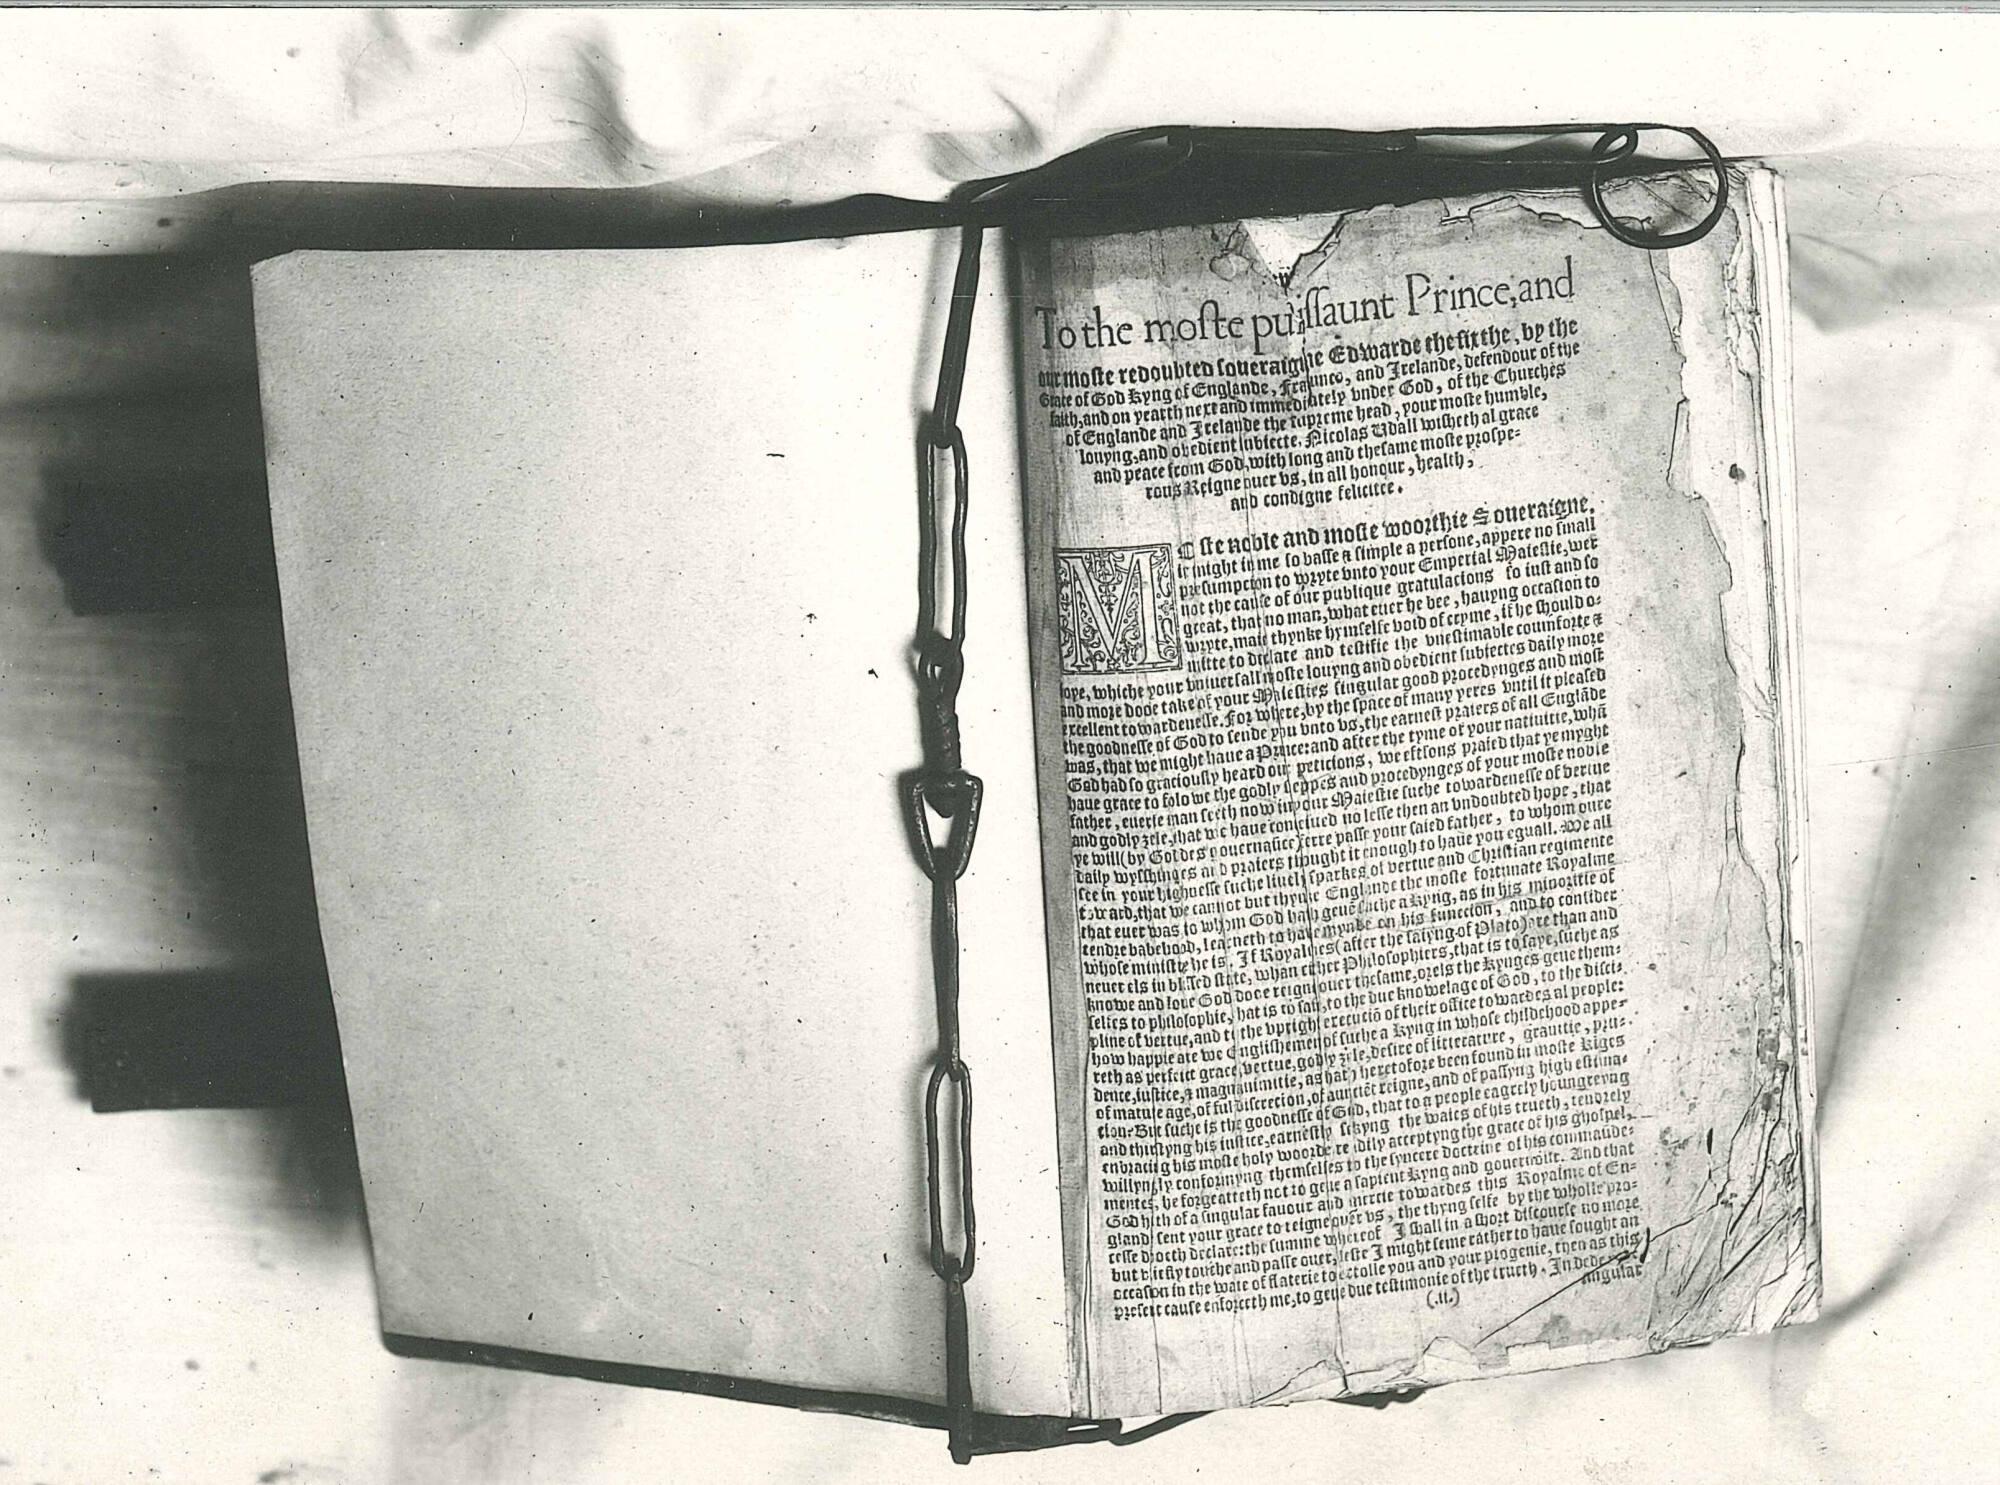 To the moste puissaunt Prince, and
our moste redoubted soueraigne Edwarde the sixthe, by the
Grace of God kyng of Englande, Fraunce, and Irelande, defendour of the
faith, and on yearth next and immediately vnder God, of the Churches
of Englande and Irelande the supreme head, your moste humble,
louyng, and obedient subiecte, Nicolas Udall wisheth al grace
and peace from God, with long and thesame moste prospe-
rous Reigne ouer vs, in all honour, health,
and condigne felicitee.
M
Oste noble and moste woorthie Soueraigne,
it might in me so basse & simple a persone, appere no small
presumpcion to wryte vnto your Emperial Maiestie, wer
not the cause of our publique gratulacions so iust and so
great, that no man, what euer he bee, hauyng occasion to
wryte, maie thynke hymselfe void of cryme, if he should o-
mitte to declare and testifie the vnestimable coumforte &
hope, whiche your vniuersall moste louyng and obedient subiectes daily more
and more dooe take of your Maiesties singular good procedynges and most
excellent towardenesse. For where, by the space of many yeres vntil it pleased
the goodnesse of God to sende you vnto vs, the earnest praiers of all Englāde
was, that we might haue a Prince: and after the tyme of your natiuitie, whā
God had so graciously heard our peticions, we eftsons praied that ye myght
haue grace to folowe the godly steppes and procedynges of your moste noble
father, euerie man seeth now in your Maiestie suche towardenesse of vertue
and godly zele, that we haue conceiued no lesse then an vndoubted hope, that
ye will (by Goddes gouernaūce) ferre passe your saied father, to whom oure
daily wysshinges and praiers thought it enough to haue you eguall. We all
see in your highnesse suche liuely sparkes of vertue and Christian regimente
toward, that we cannot but thynke Englande the moste fortunate Royalme
that euer was, to whom God hath geuē suche a kyng, as in his minoritie of
tendre babehood, learneth to haue mynde on his funccion, and to consider
whose ministre he is. If Royalmes (after the saiyng of Plato) are than and
neuer els in blissed state, whan either Philosophiers, that is to saye, suche as
knowe and loue God dooe reigne ouer thesame, orels the kynges geue them-
selfes to philosophie, that is to saie, to the due knowelage of God, to the disci-
pline of vertue, and to the vpright execuciō of their office towardes al people:
how happie are we Englishemen of suche a kyng in whose childehood appe-
reth as perfeict grace, vertue, godly zele, desire of litterature, grauitie, pru-
dence, iustice, & magnanimitie, as hath heretofore been found in moste kīges
of mature age, of ful discrecion, of auncient reigne, and of passyng high estima-
cion. But suche is the goodnesse of God, that to a people eagrely houngreyng
and thirstyng his iustice, earnestly sekyng the waies of his trueth, tendrely
enbracing his moste holy woorde, readily acceptyng the grace of his ghospel,
willyngly conformyng themselfes to the syncere doctrine of his commaūde-
mentes, he forgeatteth not to geue a sapient kyng and gouernour. And that
God hath of a singular fauour and mercie towardes this Royalme of En-
gland sent your grace to reigne ouer vs, the thyng selfe by the wholle pro-
cesse dooeth declare: the summe whereof I shall in a short discourse no more
but briefly touche and passe ouer, leste I might seme rather to haue sought an
occasion in the waie of flaterie to extolle you and your progenie, then as this
present cause enforceth me, to geue due testimonie of the trueth. In dede
singular
(.ii.)